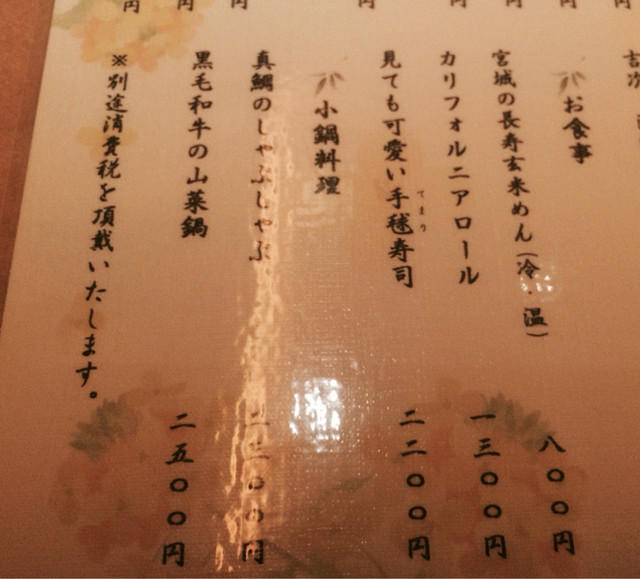 お食事
宮城の長寿玄米めん（冷・温） 八〇〇円
カリフォルニアロール 一三〇〇円
見ても可愛い手毬寿司 二二〇〇円
てまり
小鍋料理
真鯛のしゃぶしゃぶ 二二〇〇円
黒毛和牛の山菜鍋 二五〇〇円
※別途消費税を頂戴いたします。